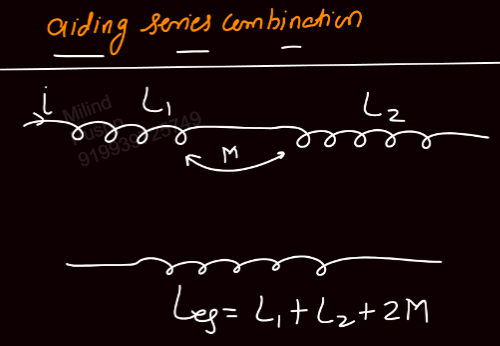 aiding series combination
i L₁ L₂
Milind
919939
749
M
Leq = L₁ + L₂ + 2M